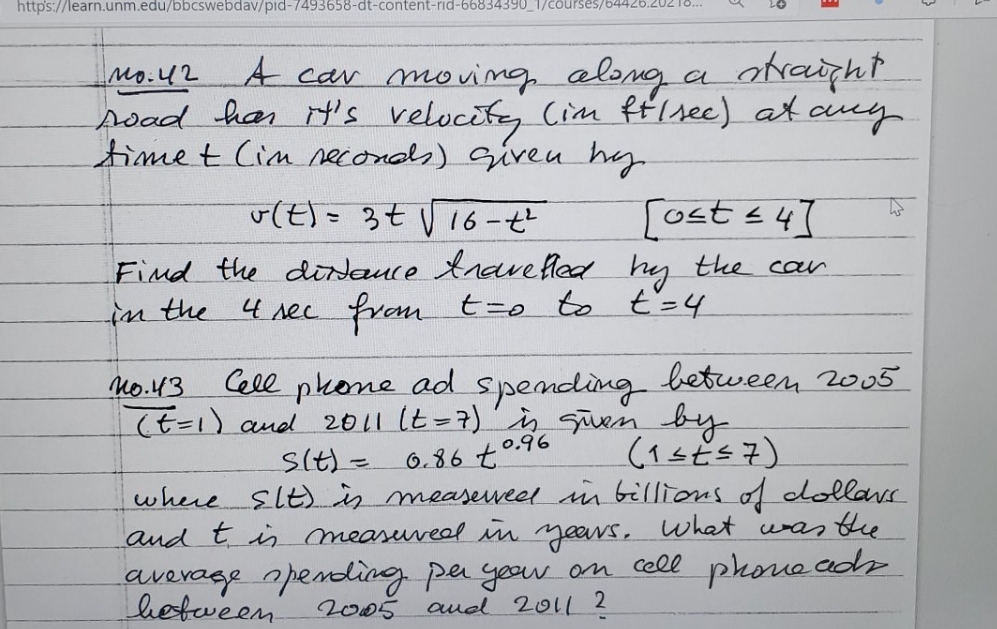 https://learn.unm.edu/bbcswebdav/pid-7493658-dt-content-rid-66834390_1/courses/64426.20218...
No.42 A car moving along a straight
road has it's velocity (in ft/sec) at any
time t (in seconds) given by
v(t) = 3t √16-t² [0≤t≤4]
Find the distance travelled by the car
in the 4 sec from t=0 to t=4
No.43 Cell phone ad spending between 2005
(t=1) and 2011 (t=7) is given by
S(t) = 0.86 t^0.96 (1≤t≤7)
where S(t) is measured in billions of dollars
and t is measured in years. What was the
average spending per year on cell phone ads
between 2005 and 2011?